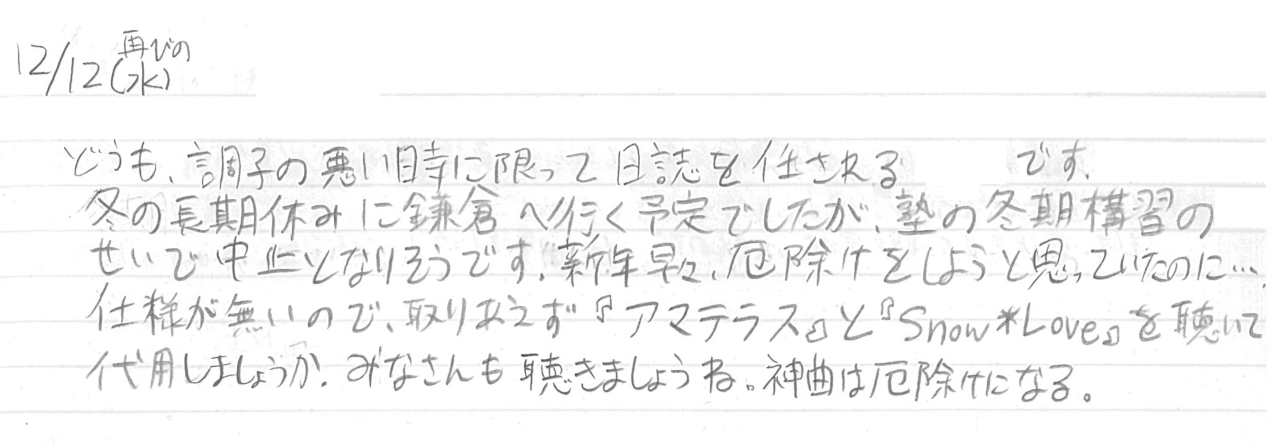 再びの
12/12(水)
どうも、調子の悪い時に限って日誌を任される です。
冬の長期休みに鎌倉へ行く予定でしたが、塾の冬期構習の
せいで中止となりそうです。新年早々、厄除けをしようと思っていたのに…。
仕様が無いので、取りあえず『アマテラス』と『Snow*Love』を聴いて
代用しましょうか。みなさんも聴きましょうね。神曲は厄除けになる。